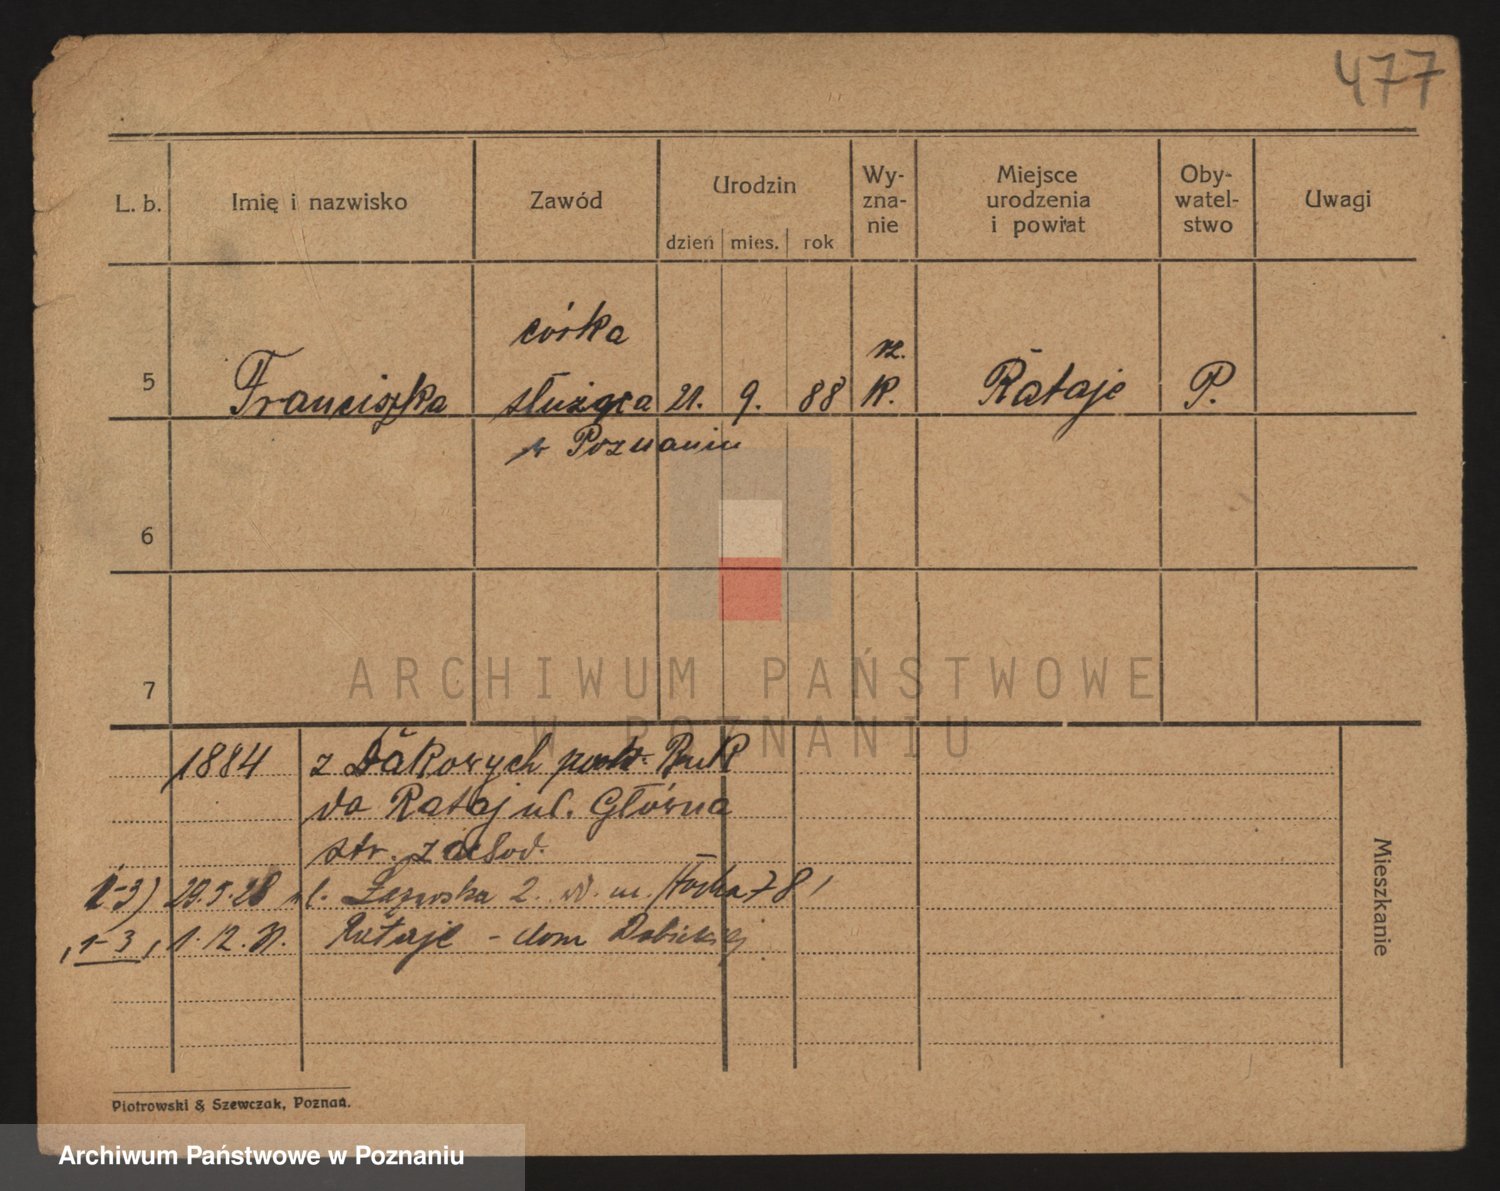 477
L. b. Imię i nazwisko Zawód Urodzin dzień mies. rok Wy-zna-nie Miejsce urodzenia i powiat Oby-watel-stwo Uwagi
córka
5 Franciszka służąca 21. 9. 88 rz. K. Rataje P.
w Poznaniu
6
7
1884 z Dakowych pow. Buk
do Rataj ul. Główna
str. zachod.
1-3) 29.5.28 ul. 2. 78
1-3, 1.12.31. Rataje - dom
Mieszkanie
Piotrowski & Szewczak, Poznań.
ARCHIWUM PAŃSTWOWE
W POZNANIU
Archiwum Państwowe w Poznaniu